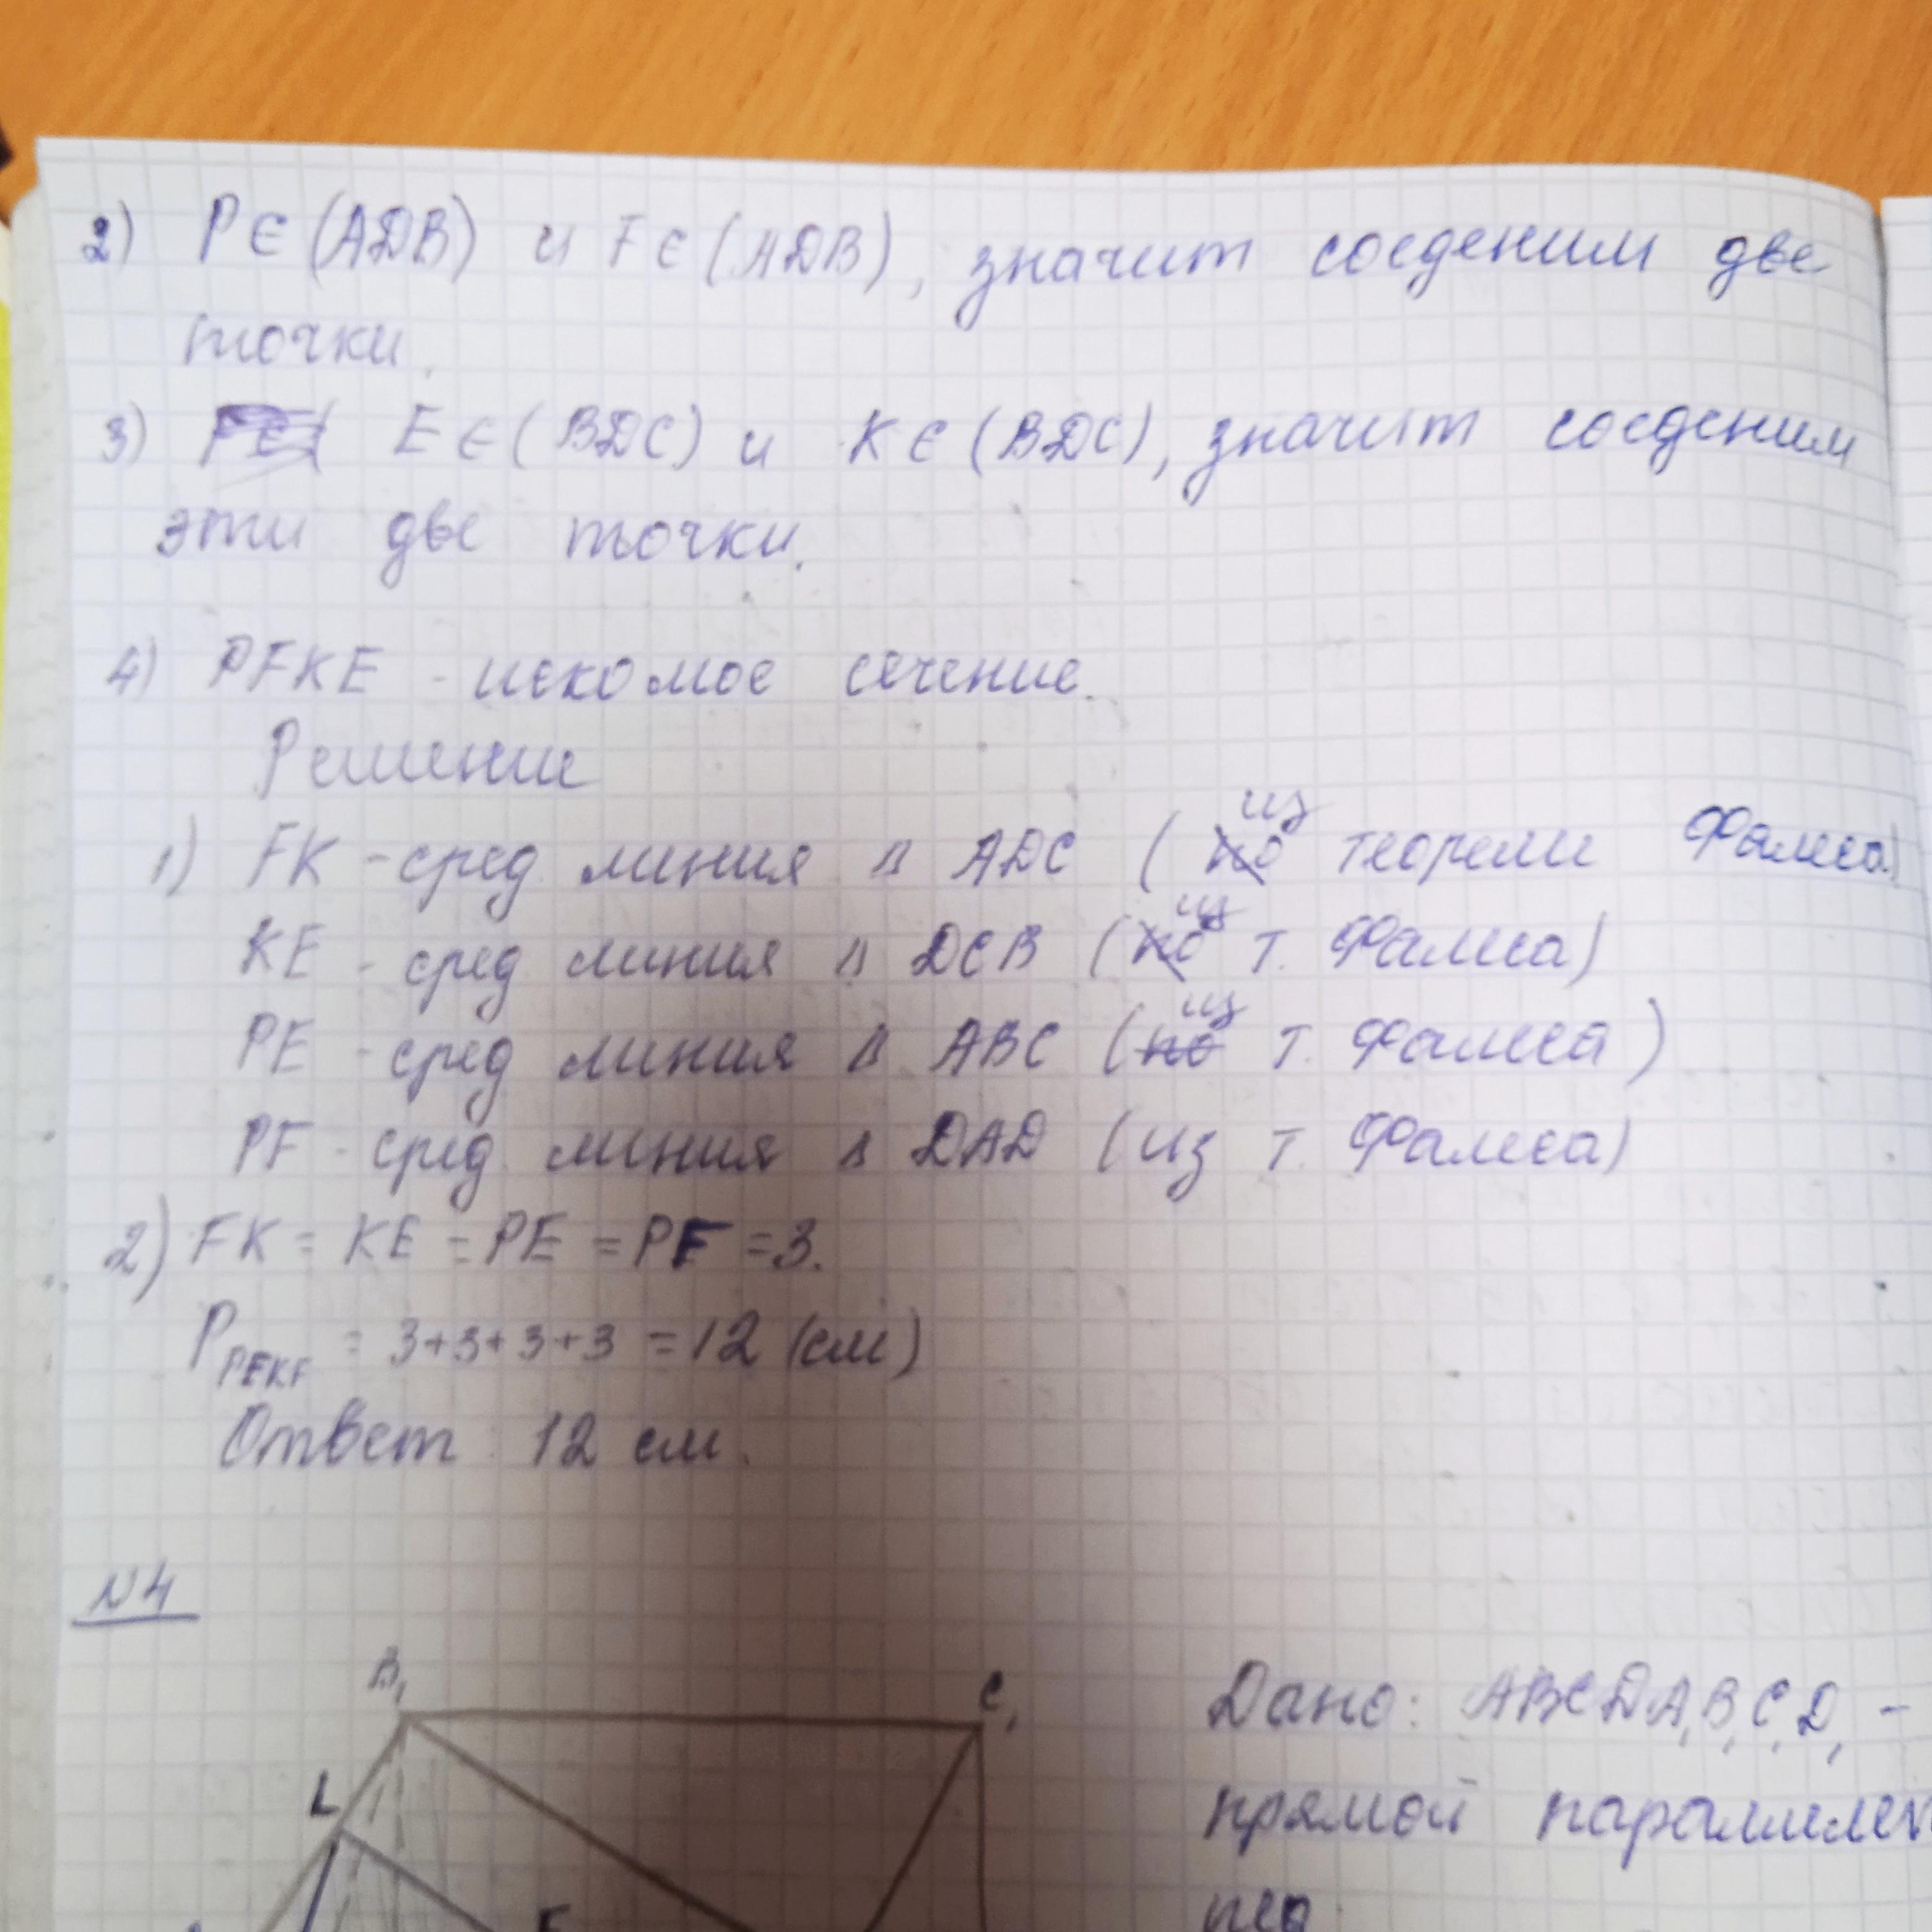 2) P ∈ (ADB) и F ∈ (ADB), значит соеденим две
точки.
3) E ∈ (BDC) и K ∈ (BDC), значит соеденим
эти две точки.
4) PFKE - искомое сечение.
Решение
1) FK - сред. линия Δ ADC (из теоремы Фалеса)
KE - сред линия Δ DCB (из т. Фалеса)
PE - сред линия Δ ABC (из т. Фалеса)
PF - сред. линия Δ DAD (из т. Фалеса)
2) FK = KE = PE = PF = 3.
P PEKF = 3+3+3+3 = 12 (см)
Ответ: 12 см.
N4
B₁ C₁
Дано: ABCDA₁B₁C₁D₁ -
L
прямой параллелеп
F